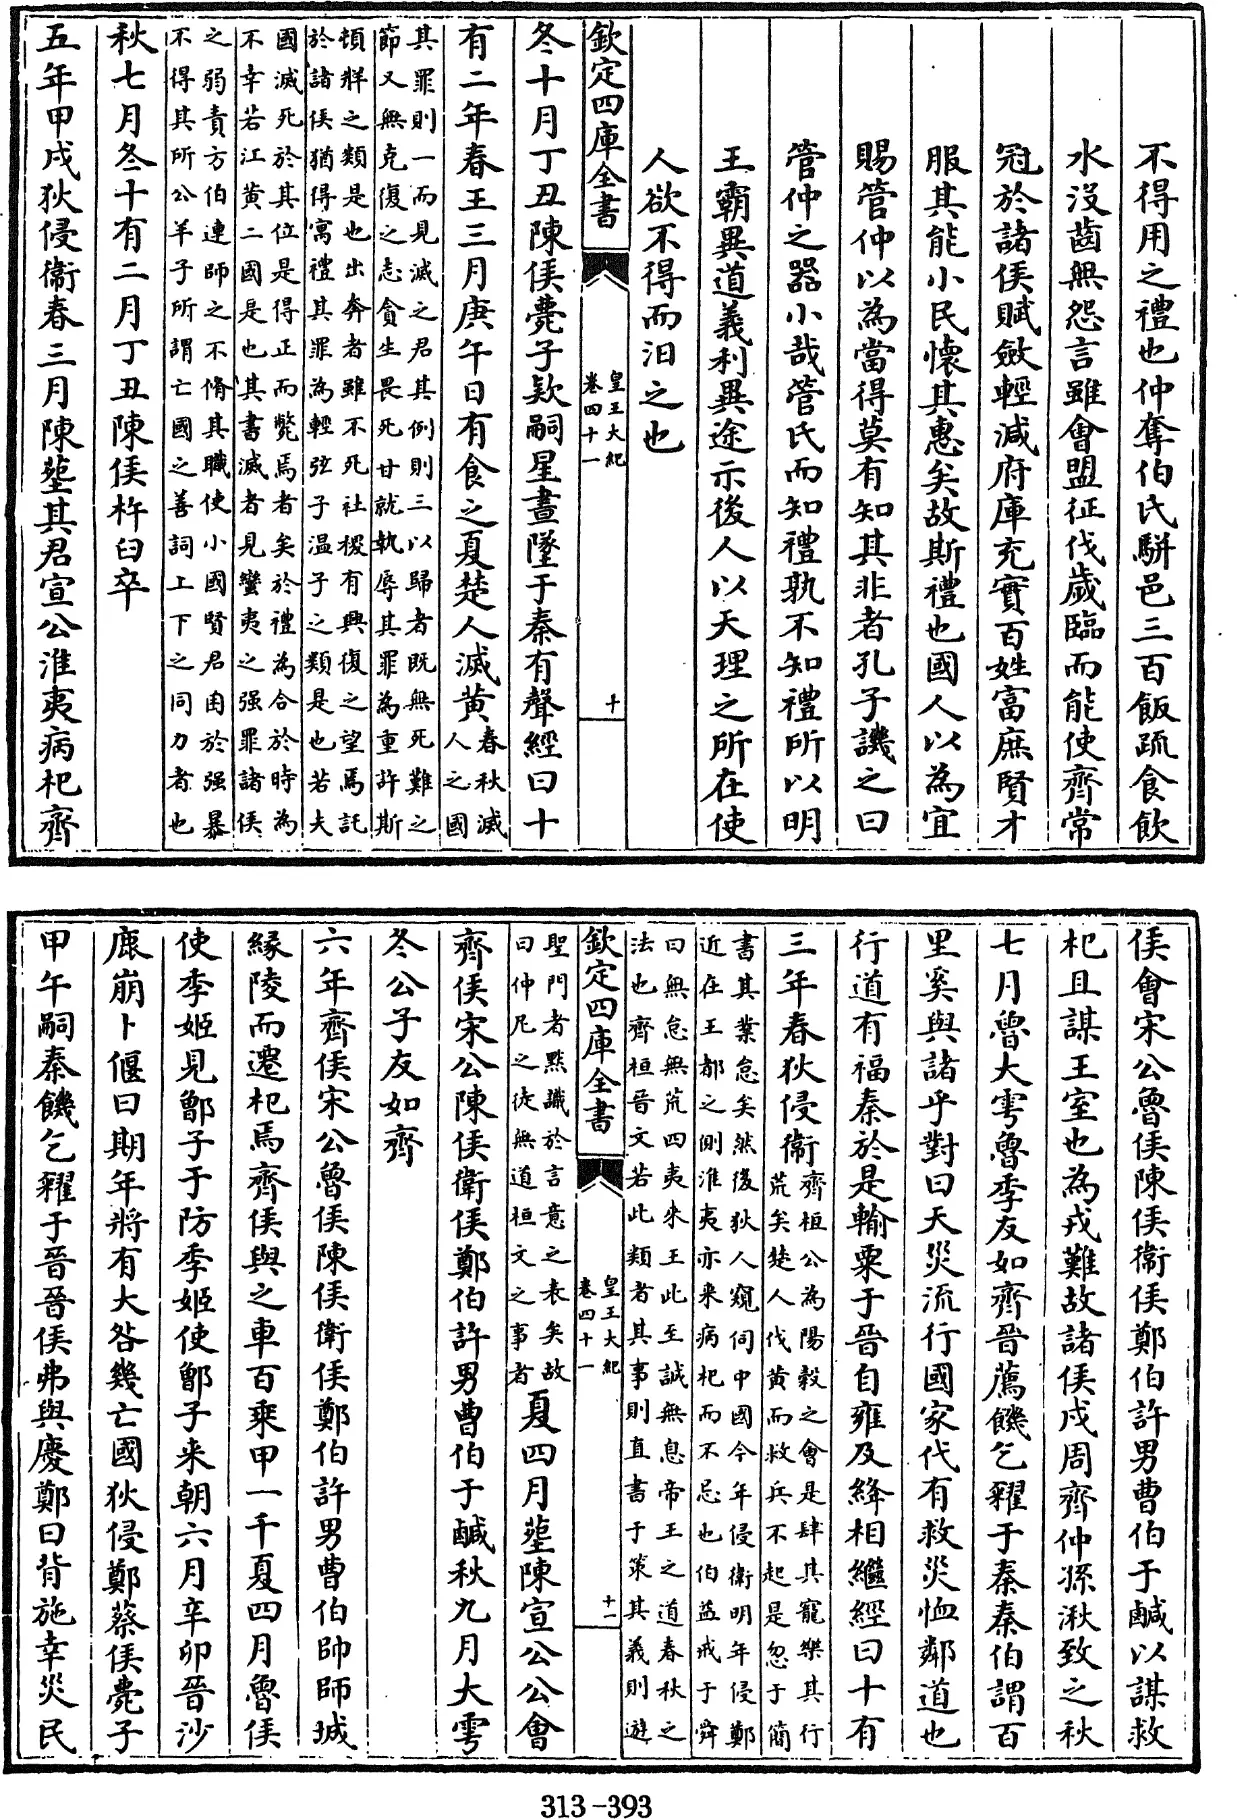 不得用之禮也仲奪伯氏駢邑三百飯疏食飲
水沒齒無怨言雖會盟征伐歲臨而能使齊常
冠於諸侯賦斂輕減府庫充實百姓富庶賢才
服其能小民懷其惠矣故斯禮也國人以為宜
賜管仲以為當得莫有知其非者孔子譏之曰
管仲之器小哉管氏而知禮孰不知禮所以明
王霸異道義利異途示後人以天理之所在使
人欲不得而汨之也
欽定四庫全書
皇王大紀
卷四十一
十
冬十月丁丑陳侯薨子欵嗣星晝墜于秦有聲經曰十
有二年春王三月庚午日有食之夏楚人滅黃
春秋滅
人之國
其罪則一而見滅之君其例則三以歸者既無死難之
節又無克復之志貪生畏死甘就執辱其罪為重許斯
頓牂之類是也出奔者雖不死社稷有興復之望焉託
於諸侯猶得寓禮其罪為輕弦子溫子之類是也若夫
國滅死於其位是得正而斃焉者矣於禮為合於時為
不幸若江黃二國是也其書滅者見蠻夷之强罪諸侯
之弱責方伯連帥之不脩其職使小國賢君困於强暴
不得其所公羊子所謂亡國之善詞上下之同力者也
秋七月冬十有二月丁丑陳侯杵臼卒
五年甲戌狄侵衞春三月陳塟其君宣公淮夷病杞齊
侯會宋公魯侯陳侯衞侯鄭伯許男曹伯于鹹以謀救
杞且謀王室也為戎難故諸侯戍周齊仲孫湫致之秋
七月魯大雩魯季友如齊晉薦饑乞糴于秦秦伯謂百
里奚與諸乎對曰天災流行國家代有救災恤鄰道也
行道有福秦於是輸粟于晉自雍及絳相繼經曰十有
三年春狄侵衞
齊桓公為陽穀之會是肆其寵樂其行
荒矣楚人伐黃而救兵不起是忽于簡
書其業怠矣然後狄人窺伺中國今年侵衞明年侵鄭
近在王都之側淮夷亦來病杞而不忌也伯益戒于舜
曰無怠無荒四夷來王此至誠無息帝王之道春秋之
法也齊桓晉文若此類者其事則直書于策其義則遊
欽定四庫全書
皇王大紀
卷四十一
十一
聖門者黙識於言意之表矣故
曰仲尼之徒無道桓文之事者
夏四月塟陳宣公公會
齊侯宋公陳侯衛侯鄭伯許男曹伯于鹹秋九月大雩
冬公子友如齊
六年齊侯宋公魯侯陳侯衛侯鄭伯許男曹伯帥師城
緣陵而遷杞焉齊侯與之車百乘甲一千夏四月魯侯
使季姬見鄫子于防季姬使鄫子来朝六月辛卯晉沙
鹿崩卜偃曰期年將有大咎幾亡國狄侵鄭蔡侯薨子
甲午嗣秦饑乞糴于晉晉侯弗與慶鄭曰背施幸災民
313-393